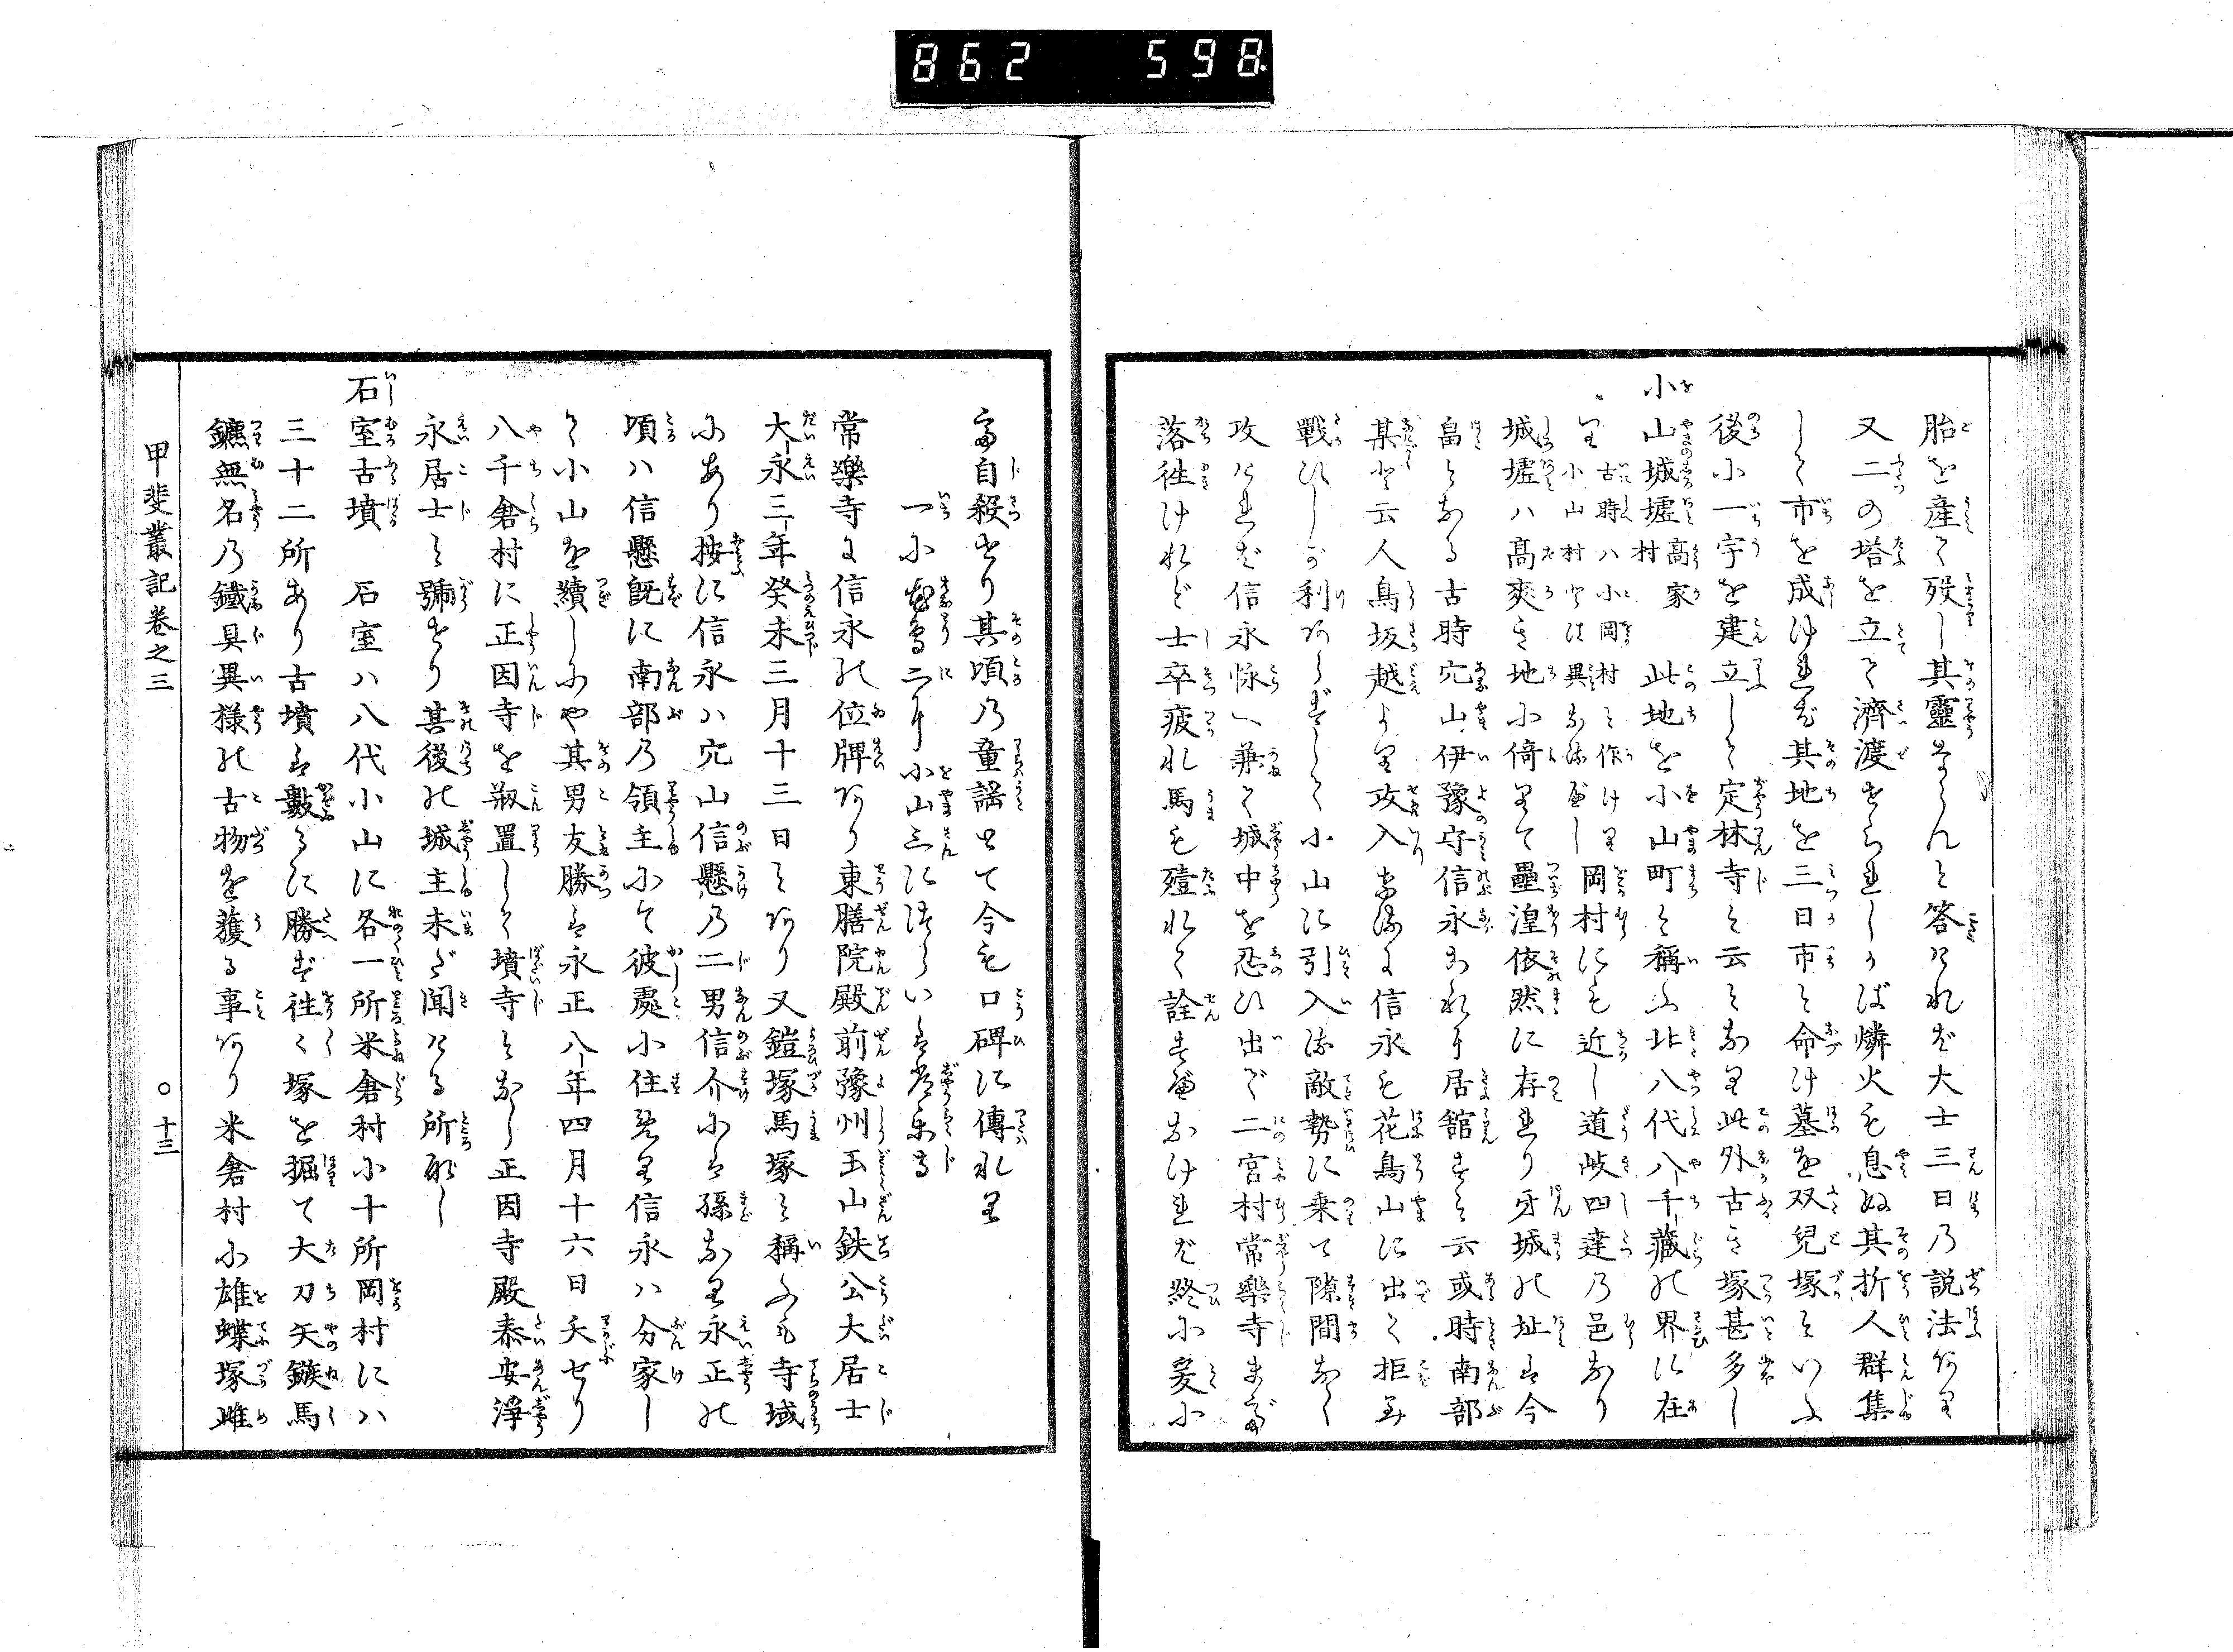 862 598
胎を産て歿し其靈ならんと答けれど大士三日乃説法あり
又二の塔を立て濟渡せられしかば燐火も息ぬ其折人群集
して市を成けれど其地を三日市と命け墓を双兒塚といふ
後小一宇を建立して定林寺と云となり此外古き塚甚多し
小山城墟 高家村 此地を小山町と稱ふ北八代八千藏の界に在
り 古時ハ小岡村と作けり小山村とは異なるべし 岡村にも近し道岐四達乃邑なり
城墟ハ髙爽き地小倚りて壘湟依然に存れり牙城の址は今
畠となる古時穴山伊豫守信永これに居舘すと云或時南部
某と云人鳥坂越より攻入ける信永も花鳥山に出て拒み
戰ひしが利あらずして小山に引入る敵勢に乗て隙間なく
攻ければ信永悕へ兼て城中を忍び出で二宮村常樂寺まで
落徃けれど士卒疲れ馬も殪れて詮すべなければ終小爰小
て自殺せり其頃乃童謡とて今も口碑に傳れり
常樂寺に信永の位牌あり東膳院殿前豫州玉山鉄公大居士
大永三年癸未三月十三日とあり又鎧塚馬塚と稱ふも寺域
小あり按に信永ハ穴山信懸乃二男信介小は孫なり永正の
頃ハ信懸既に南部乃領主小て彼處小住めり信永ハ分家し
て小山を續しにや其男友勝は永正八年四月十六日夭せり
八千倉村に正因寺を剏置して墳寺となし正因寺殿泰安淨
永居士と號せり其後の城主未だ聞ける所なし
石室古墳 石室ハ八代小山に各一所米倉村小十所岡村にハ
三十二所あり古墳は數るに勝ず徃く塚を掘て大刀矢鏃馬
鑣無名乃鐵具異様の古物を獲る事あり米倉村小雄蝶塚雌
甲斐叢記卷之三
○十三